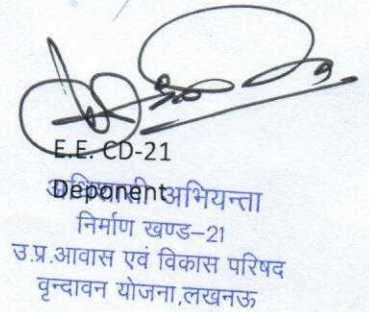 E.E. CD-21
Deponent
अधिशासी अभियन्ता
निर्माण खण्ड–21
उ.प्र.आवास एवं विकास परिषद
वृन्दावन योजना,लखनऊ